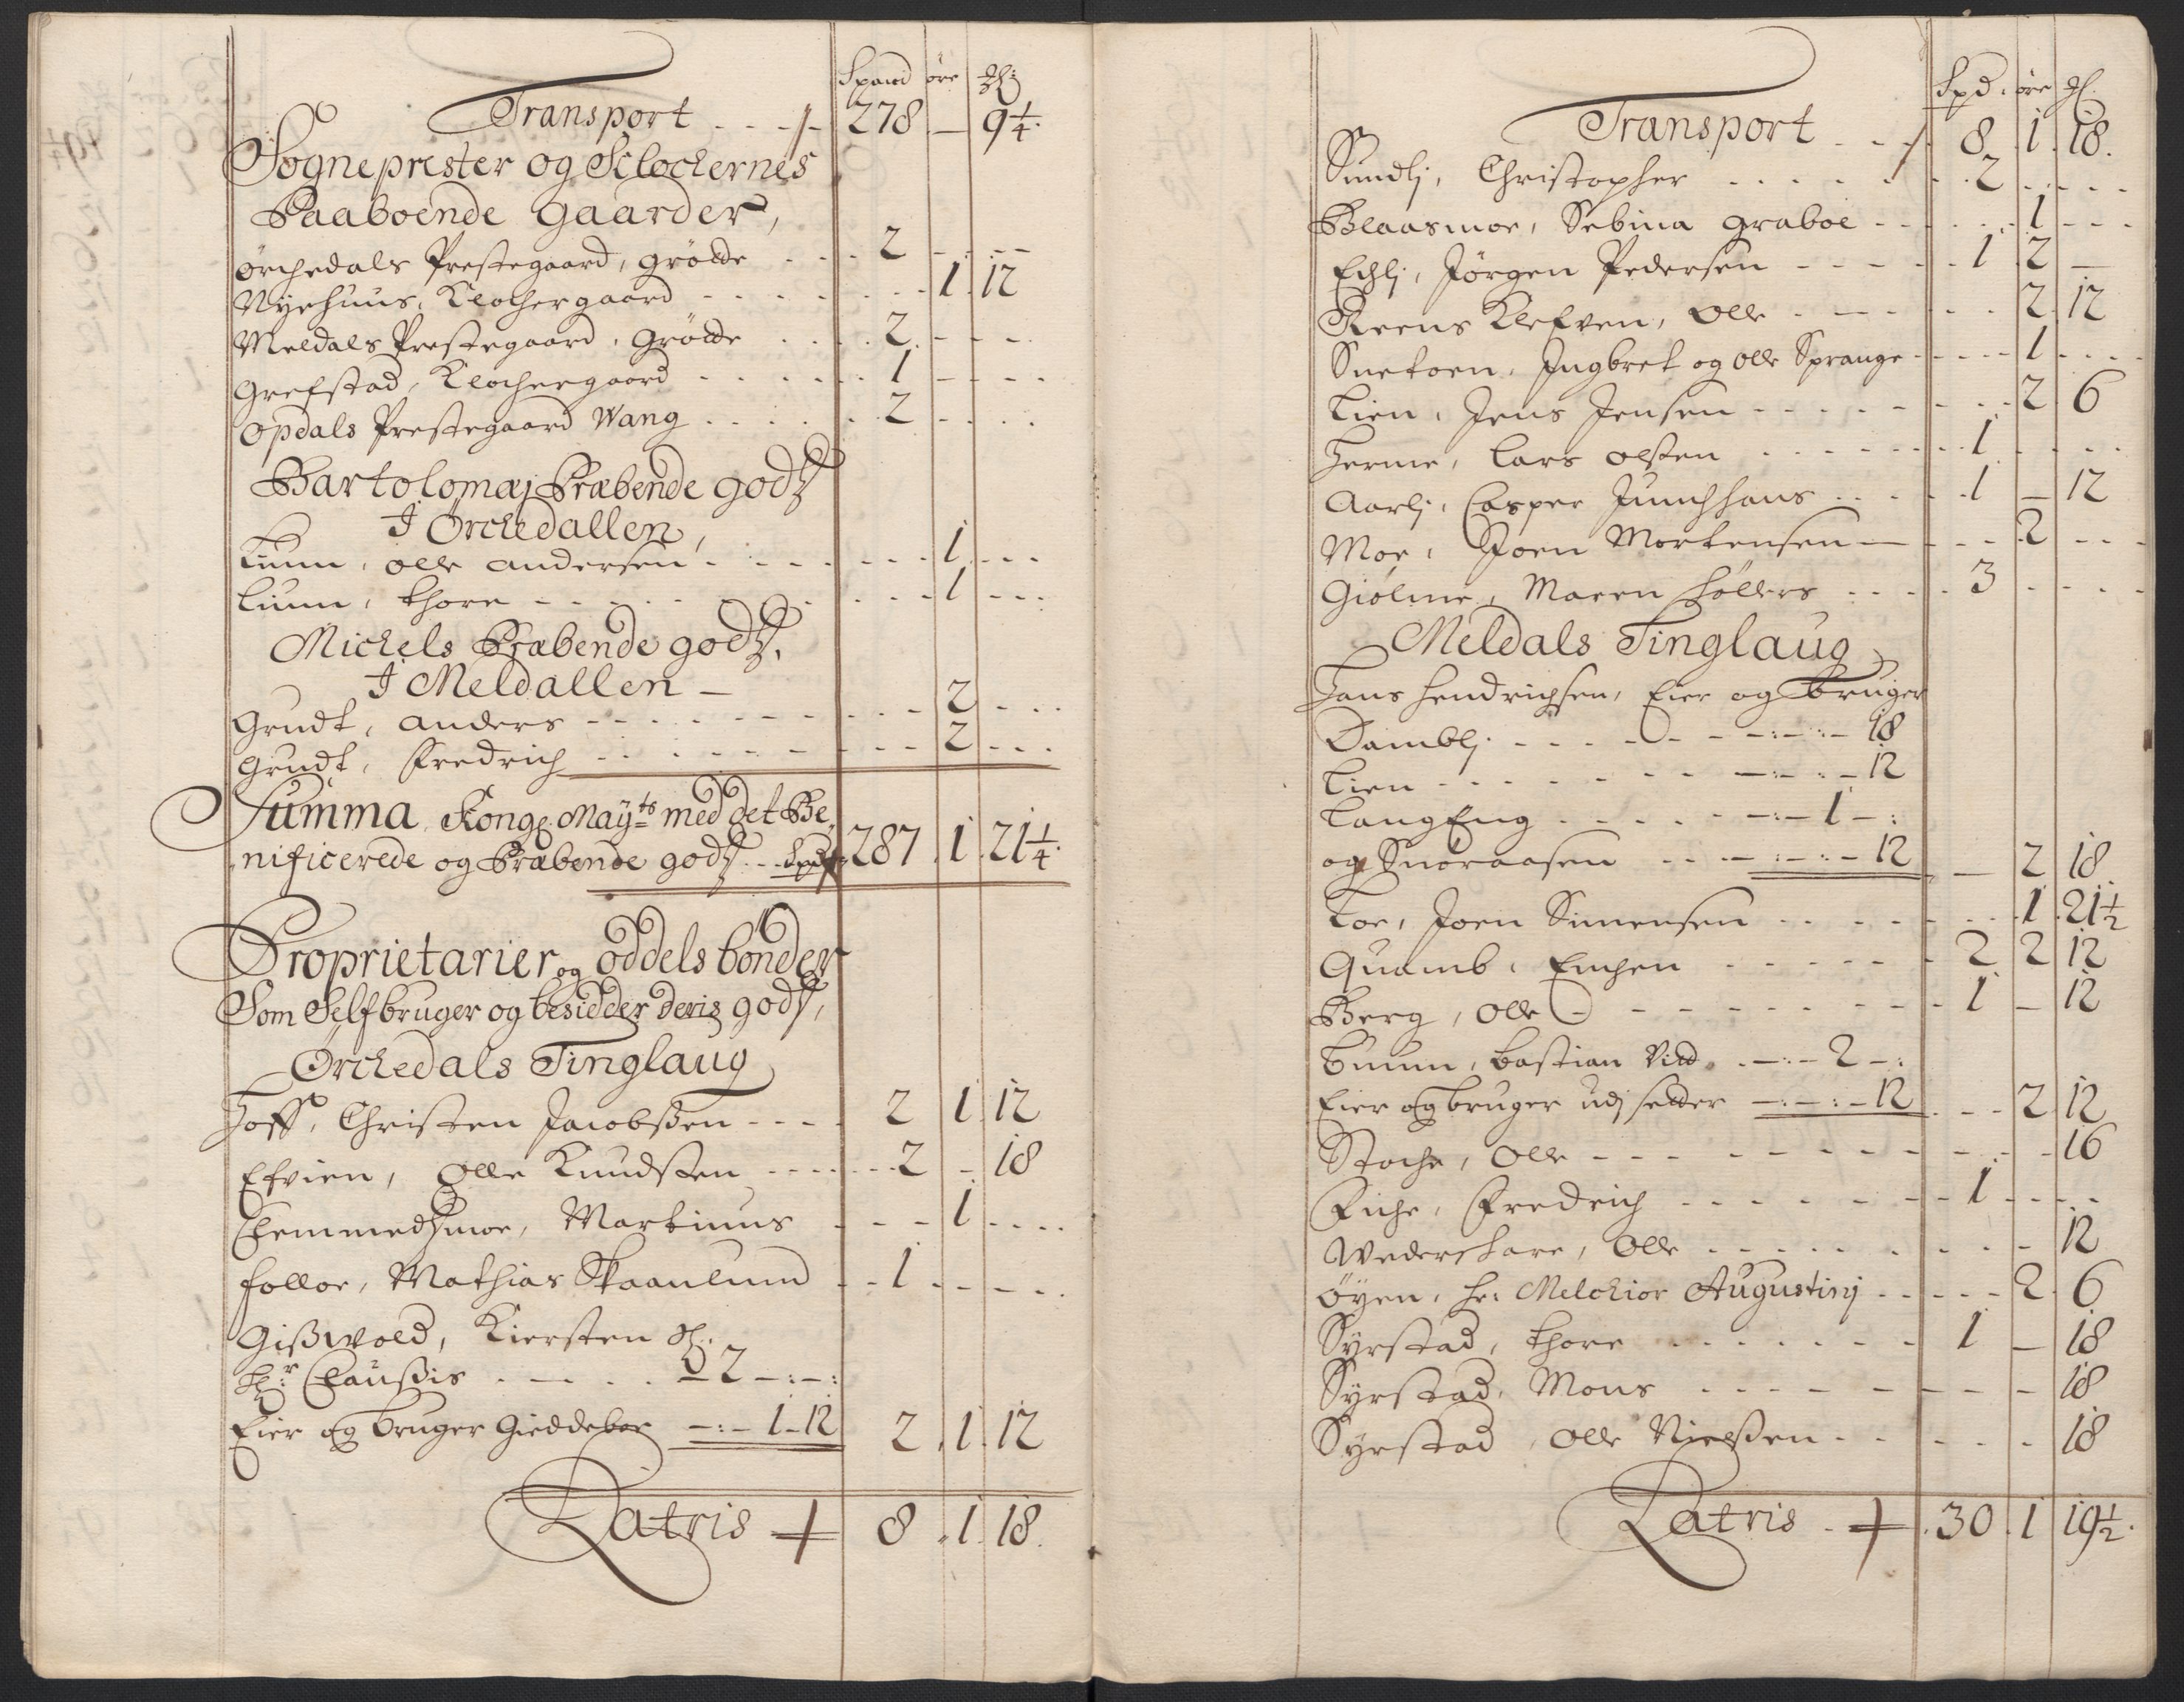 Spand öre
Transport - - - 278 — 9 1/4
Sogneprester og Klockernes
Paaboende Gaarder,
Örchedals Prestegaard, Grötte - - - 2 - - -
Nyehuus, Klochergaard - - - - 1. 12
Meldals Prestegaard, Grötte - - - 2 - - -
Grefstad, Klochergaard - - - - 1 - - -
Opdals Prestegaard Wang - - - - 2 - - -
Bartolomæj Præbende godtz
I Örchedallen,
Olle Andersen - - - - 1 - - -
Thore - - - - 1 - - -
Michels Præbende godtz.
I Meldallen —
Grudt, Anders - - - - 2 - - -
Grudt, Fredrich - - - - 2 - - -
Summa Kong. Mayts med det Be
nificerede og Præbende godtz - - Spd 287. 1. 21 1/4
Proprietarier og oddels bönder
Som Self bruger og besidder deris godtz,
Örchedals Tinglaug
Hoff, Christen Jacobsen - - - 2 1. 12
Efvien, Olle Knudsen - - - - 2 - 18
Clemmedsmoe, Martinus - - - 1 - - -
Folloe, Mathias Skaanlund - - 1 - - -
Gisswold, Kiersten
Claussis - - - - 2 - : - :
Eier og bruger Gieddeboe - : - 1 - 12 2. 1. 12
Latris 8. 1. 18.
Spd. öre
Transport - - - 8. 1. 18.
Sundlj, Christopher - - - - 2 - - -
Blaasmoe, Sebina Graboe - - - - 1 - - -
Echlj, Jörgen Pedersen - - - - 1 2 —
Reens Klefven, Olle - - - - 2. 12
Snetoen, Ingbret og Olle Sprange - - - - 1 - - -
Lien, Jens Jensen - - - - 2. 6
Jerme, Lars Olsen - - - - 1 - - -
Aarlj, Casper Junchhans - - - 1 — 12
Moe, Joen Mortensen — - - - 2 - - -
Giölme, Maren Höllers - - - 3 - - -
Meldals Tinglaug
Hans Hendrichsen, Eier og Bruger
Damblj - - - - - : - : - 18
Lien - - - - - : - : - 12
Lang Eng - - - - - : - 1 - :
og Snoraasen - - - - : - : - 12 — 2 18.
Toe, Joen Simensen - - - - 1. 21 1/2
Quamb, Emhen - - - - 2 2 12
Berg, Olle - - - - 1 - 12
Buum, Bastian - : - 2 - :
Eier og bruger udj setter - : - : - 12 - - 2. 12
Stoche, Olle - - - - 16
Fiche, Fredrich - - - - 1 - - -
Wederskare, Olle - - - - 12
Öyen, Hr. Melchior Augustinj - - - - 2. 6
Syrstad, Thore - - - - 1 — 18
Syrstad, Mons - - - - 18
Syrstad, Olle Nielsen - - - - 18
Latris - 30. 1 19 1/2.